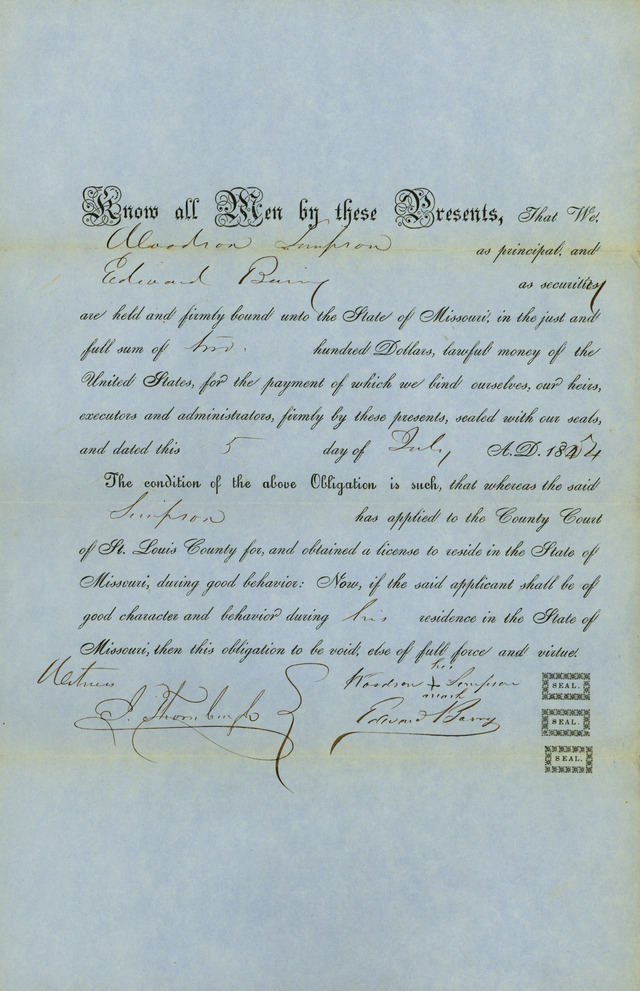 Know all Men by these Presents, That We,
Woodson Simpson as principal, and
Edward Barry as security
are held and firmly bound unto the State of Missouri, in the just and
full sum of two hundred Dollars, lawful money of the
United States, for the payment of which we bind ourselves, our heirs,
executors and administrators, firmly by these presents, sealed with our seals,
and dated this 5 day of July A.D. 1854
The condition of the above Obligation is such, that whereas the said
Simpson has applied to the County Court
of St. Louis County for, and obtained a license to reside in the State of
Missouri, during good behavior: Now, if the said applicant shall be of
good character and behavior during his residence in the State of
Missouri, then this obligation to be void, else of full force and virtue.
Witness
his
Woodson + Simpson SEAL.
mark
S. Thornburgh Edward Barry SEAL.
SEAL.